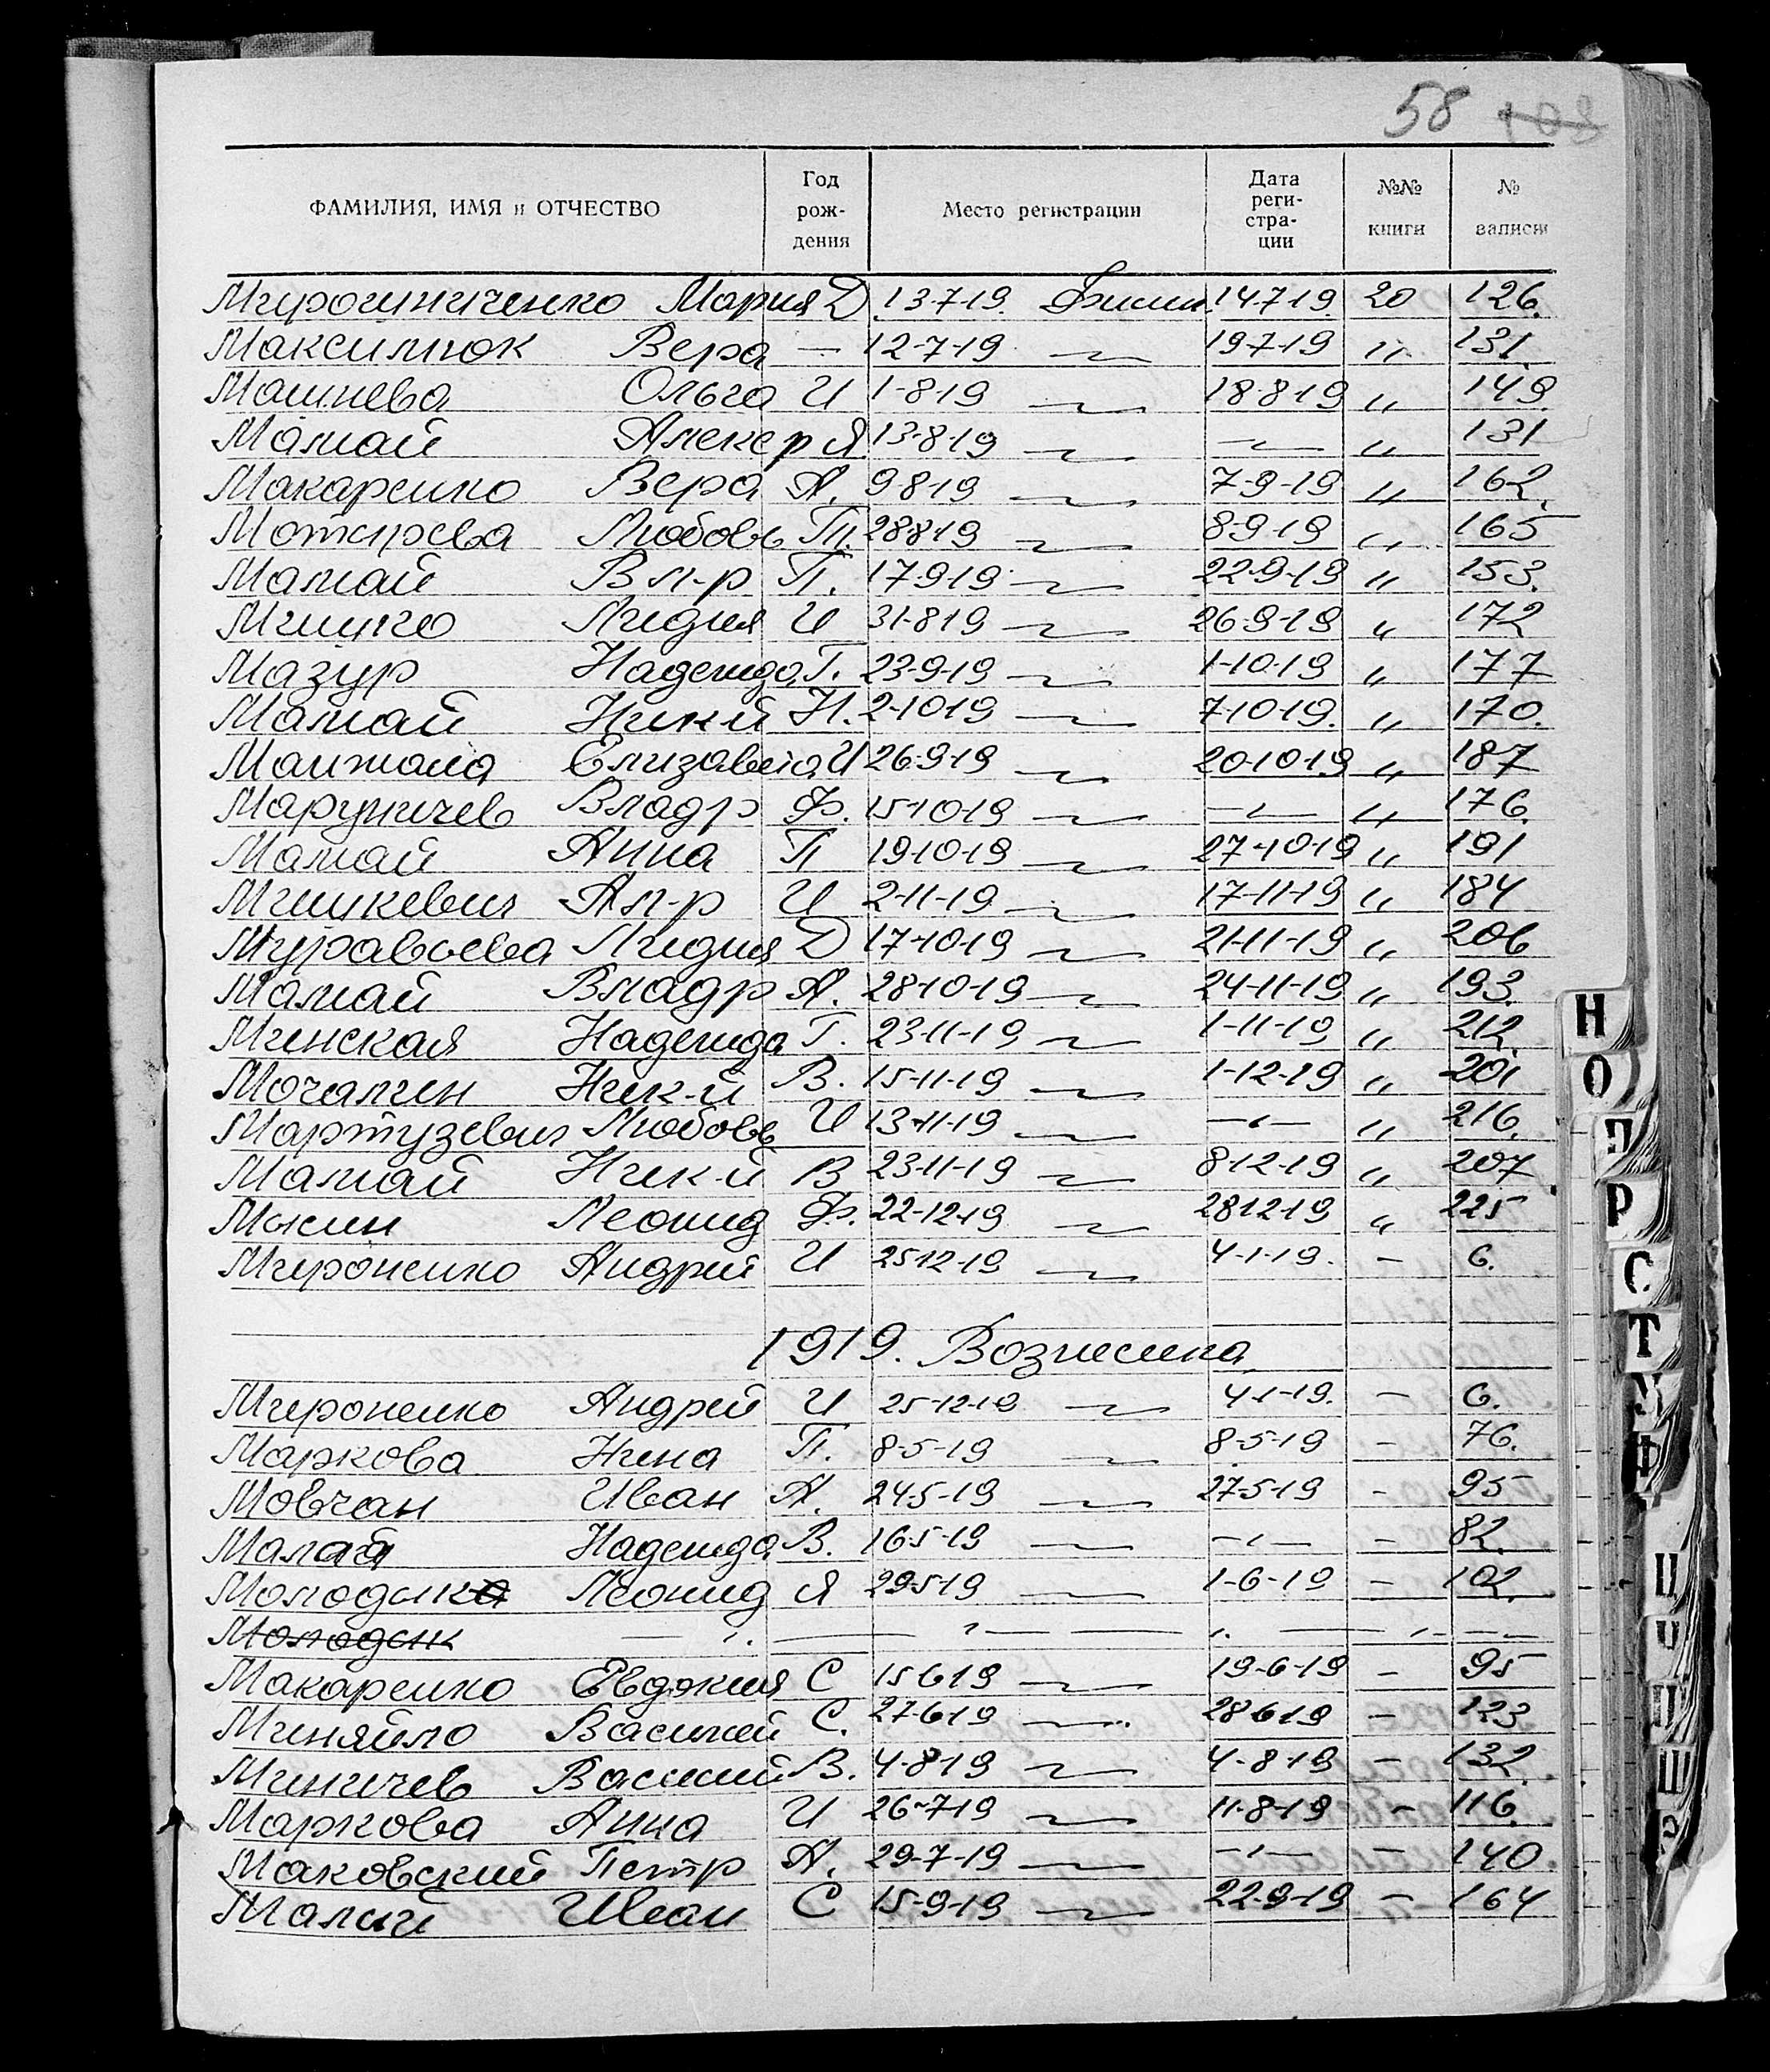 58 109
ФАМИЛИЯ, ИМЯ и ОТЧЕСТВО Год рож- дения Место регистрации Дата реги- стра- ции №№ книги № записи
Мирошниченко Мария Д 13-7-19. 14-7-19. 20 126.
Максимюк Вера — 12-7-19 〃 19-7-19 〃 131
Машнева Ольга И 1-8-19 〃 18-8-19 〃 149.
Мамай Алекср Я 13-8-19 〃 〃 〃 131
Макаренко Вера А. 9-8-19 〃 7-9-19 〃 162.
Мотырева Любовь П. 28-8-19 〃 8-9-19 〃 165
Мамай Вл-р П. 17-9-19 〃 22-9-19 〃 153.
Лидия И 31-8-19 〃 26-9-19 〃 172
Мазур Надежда Г. 23-9-19 〃 1-10-19 〃 177
Мамай Ник-й Н. 2-10-19 〃 7-10-19. 〃 170.
Манжала Елизавета И 26-9-19 〃 20-10-19 〃 187
Маруничев Владр Ф. 15-10-19 〃 〃 〃 176.
Мамай Анна П 19-10-19 〃 27-10-19 〃 191
Мицкевич Ал-р И 2-11-19 〃 17-11-19 〃 184
Муравьева Лидия Д 17-10-19 〃 21-11-19 〃 206
Мамай Владр А. 28-10-19 〃 24-11-19 〃 193.
Минская Надежда Г. 23-11-19 〃 1-11-19 〃 212
Мочалин Ник-й В. 15-11-19 〃 1-12-19 〃 201
Мартузевич Любовь И 13-11-19 〃 〃 〃 216.
Мамай Ник-й В 23-11-19 〃 8-12-19 〃 207
Леонид Ф. 22-12-19 〃 28-12-19 〃 225
Мироненко Андрей И 25-12-19 〃 4-1-19. — 6.
1919. Вознесенка
Мироненко Андрей И 25-12-19 〃 4-1-19. — 6.
Маркова Нина П. 8-5-19 〃 8-5-19 — 76.
Мовчан Иван А. 24-5-19 〃 27-5-19 - 95
Малая Надежда В. 16-5-19 〃 〃 — 82.
Молодык Леонид Я 29-5-19 〃 1-6-19 — 102.
Молодык 〃 〃 〃 〃 〃
Макаренко Евдокия С 15-6-19 〃 19-6-19 — 95
Миняйло Василий С. 27-6-19 〃 28-6-19 — 123
Миничев Василий В. 4-8-19 〃 4-8-19 — 132.
Маркова Анна И 26-7-19 〃 11-8-19 — 116.
Маковский Петр А. 29-7-19 〃 〃 — 140.
Малый Иван С 15-9-19 〃 22-9-19 — 164
Н
О
П
Р
С
Т
У
Ф
Ц
Ч
Ш